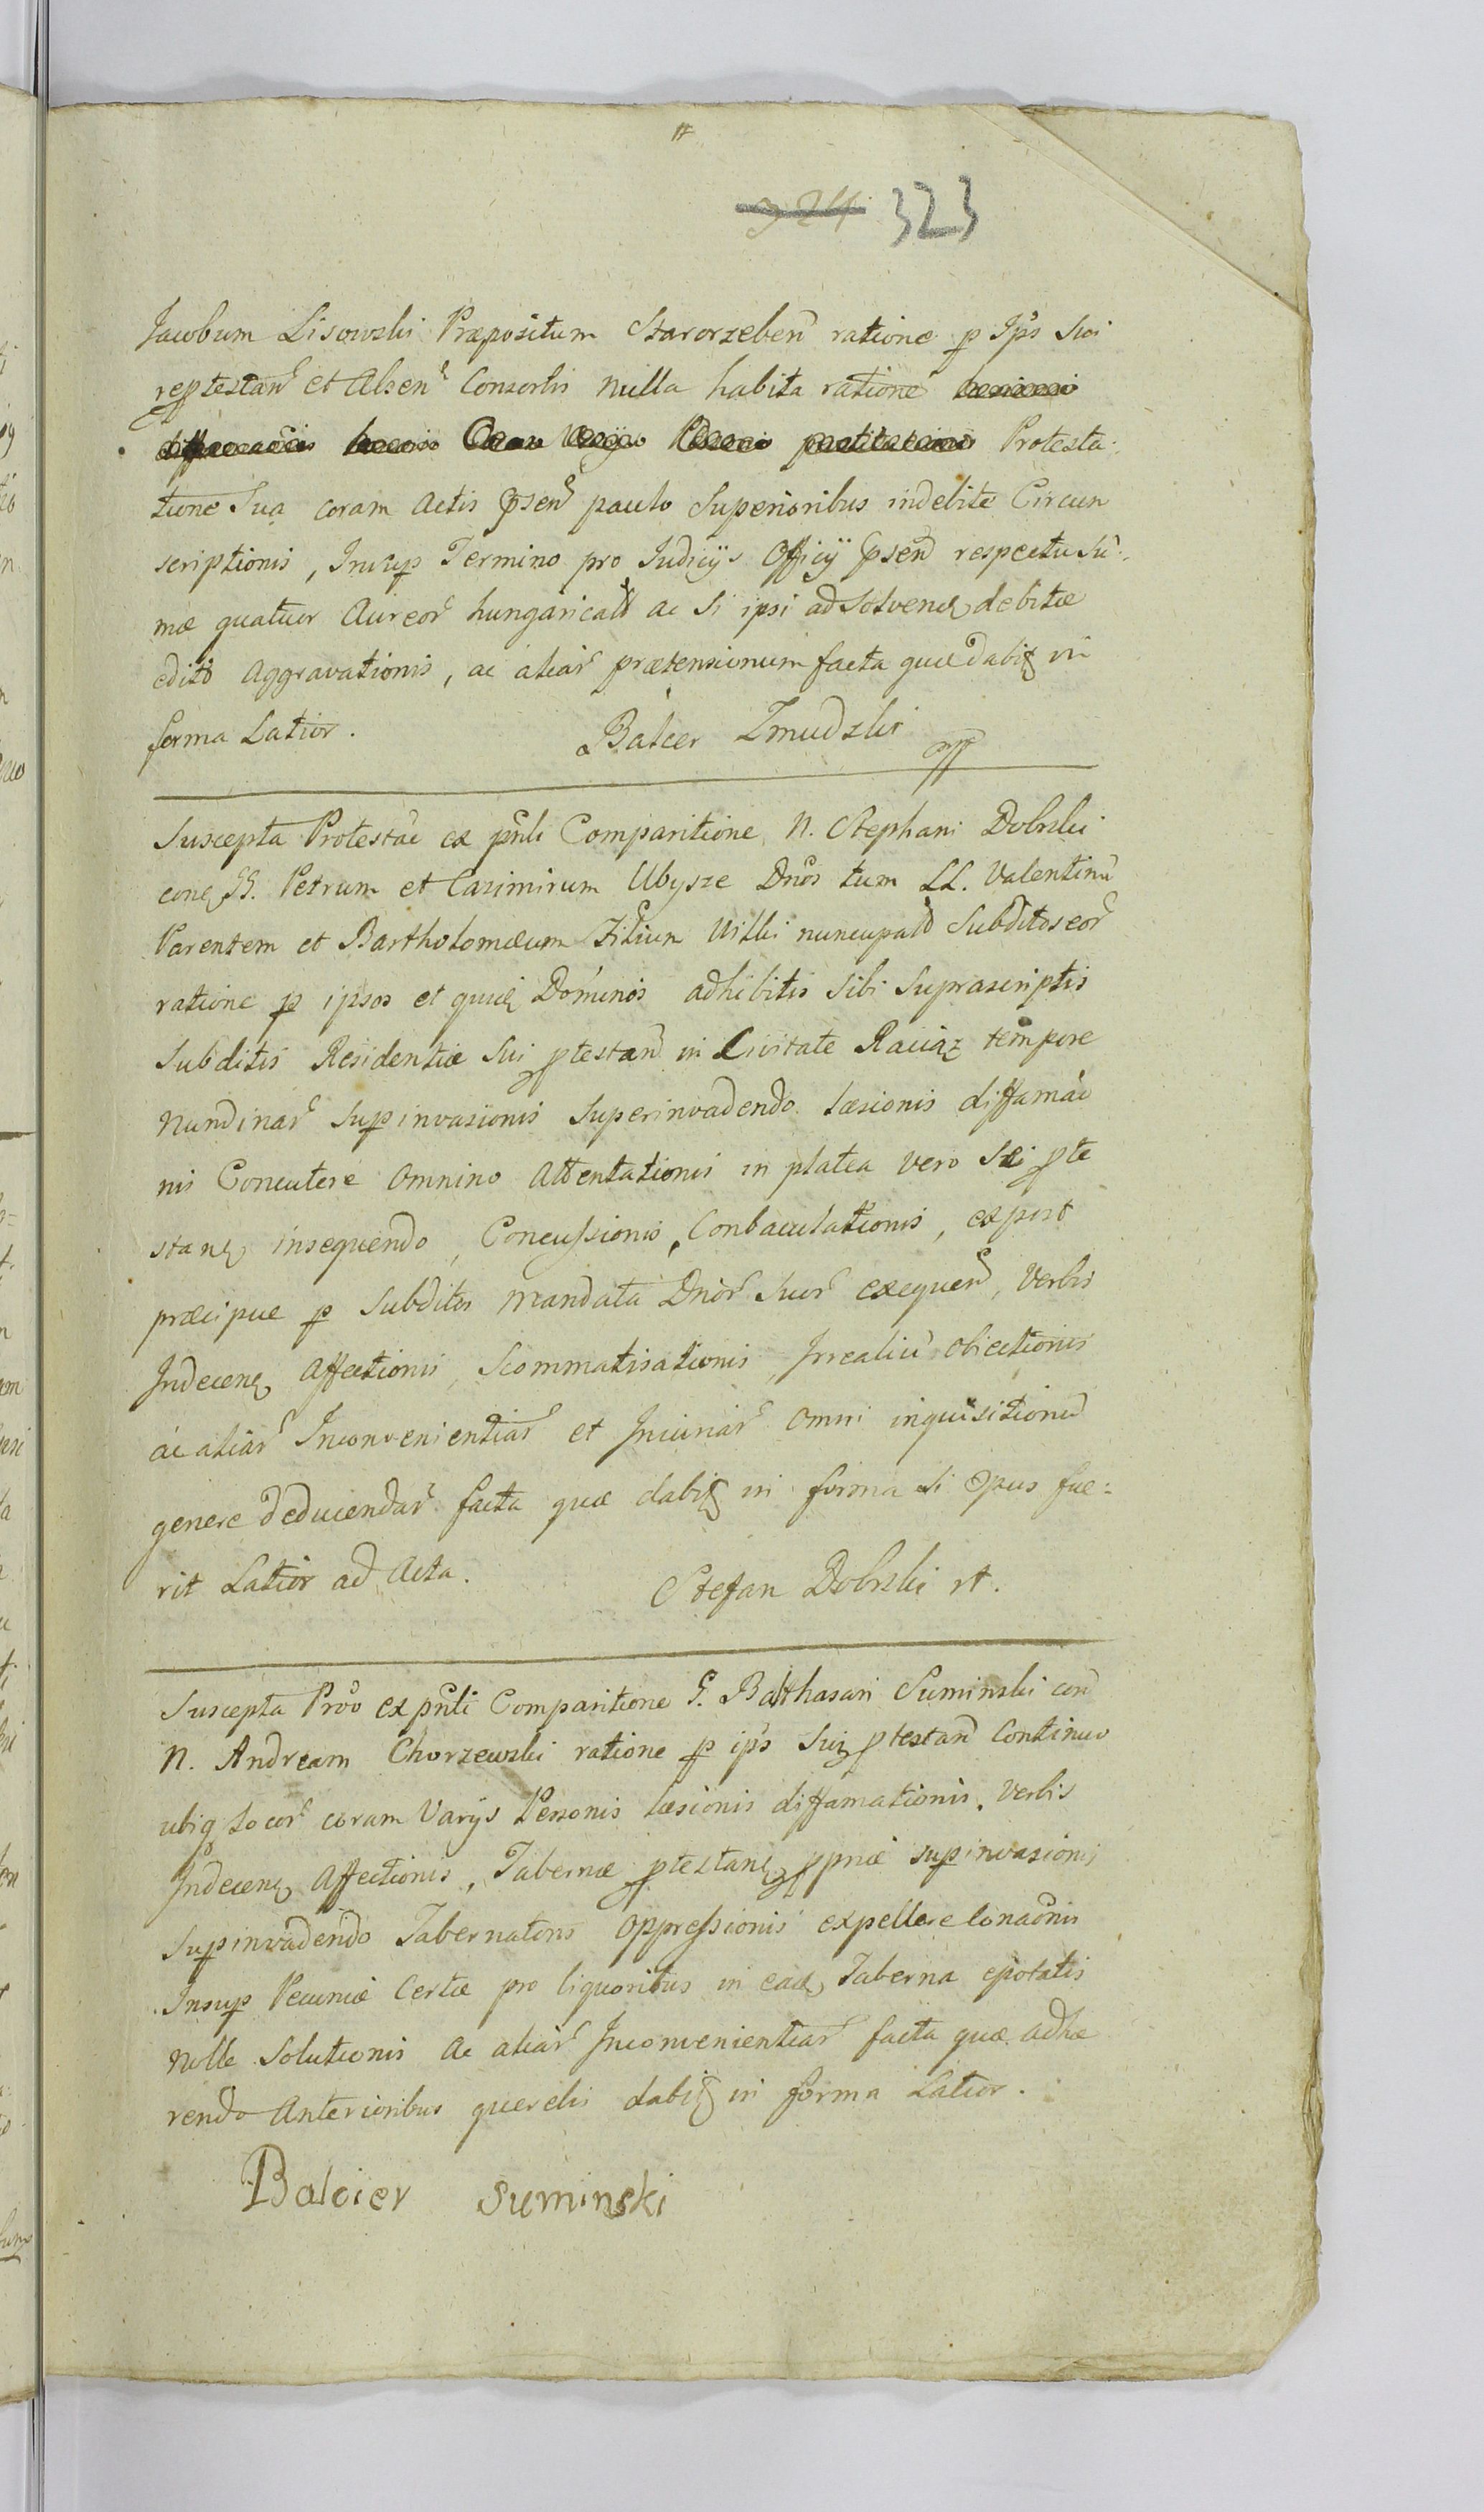 324 323
Jacobum Lisowski Præpositum Starorzeben ratione p Ips Sui
reptestan et Alsen Consortis nulla habita ratione
Protesta
tione Sua coram Actis Psen paulo Superioribus indebite Circum
scriptionis, Insup Termino pro Judicijs Officij Psen respectu Su-
mæ quatuor Aureor hungarical ac Si ipsi ad Solvend debitæ
edito Aggravationis, ac aliar prætensionum facta quæ dabit in
forma Latior. Balcer Zmudzki
Suscepta Protestao ex pnli Comparitione N. Stephani Dobrski
con GG. Petrum et Casimirum Ubysze Dnos tum LL. Valentinu
Parentem et Bartholomæum Filium Uilki nuncupato Subditos eor
ratione p ipsos et quid Dominos adhibitis Sibi Suprascriptis
Subditis Residentiæ Sui ptestan in Civitate Raciąz tempore
Nundinar Supinvasionis Superinvadendo læsionis diffamao
nis Concutere Omnino Attentationis in platea vero Sei pte
stan insequendo, Concussionis, Conbaculationis, ex post
præcipue p Subditos Mandata Dnor Suor exequen, Verbis
Indecen Affectionis, Scommatisationis, Irrealiu Obiectionis
ac aliar Inconvenientiar et Iniuriar Omni inquisitionu
genere deducendar facta quæ dabit in forma Si Opus fue-
rit Latior ad Acta. Stefan Dobrski
Suscepta Proo ex pnli Comparitione G. Balthasari Suminski con
N. Andream Chorzewski ratione p ips Sui ptestan Continuo
ubiq locor coram Varijs Personis læsionis diffamationis, Verbis
Indecen Affectionis, Tabernæ ptestan ppriæ supinvasionis
Supinvadendo Tabernatoris Oppressionis expellere Conaonis
Insup Pecuniæ Certæ pro liquoribus in ead Taberna epotatis
Nolle Solutionis Ac aliar Inconvenientiar facta quæ adhæ
rendo Anterioribus querelis dabit in forma Latior.
Balcier Suminski